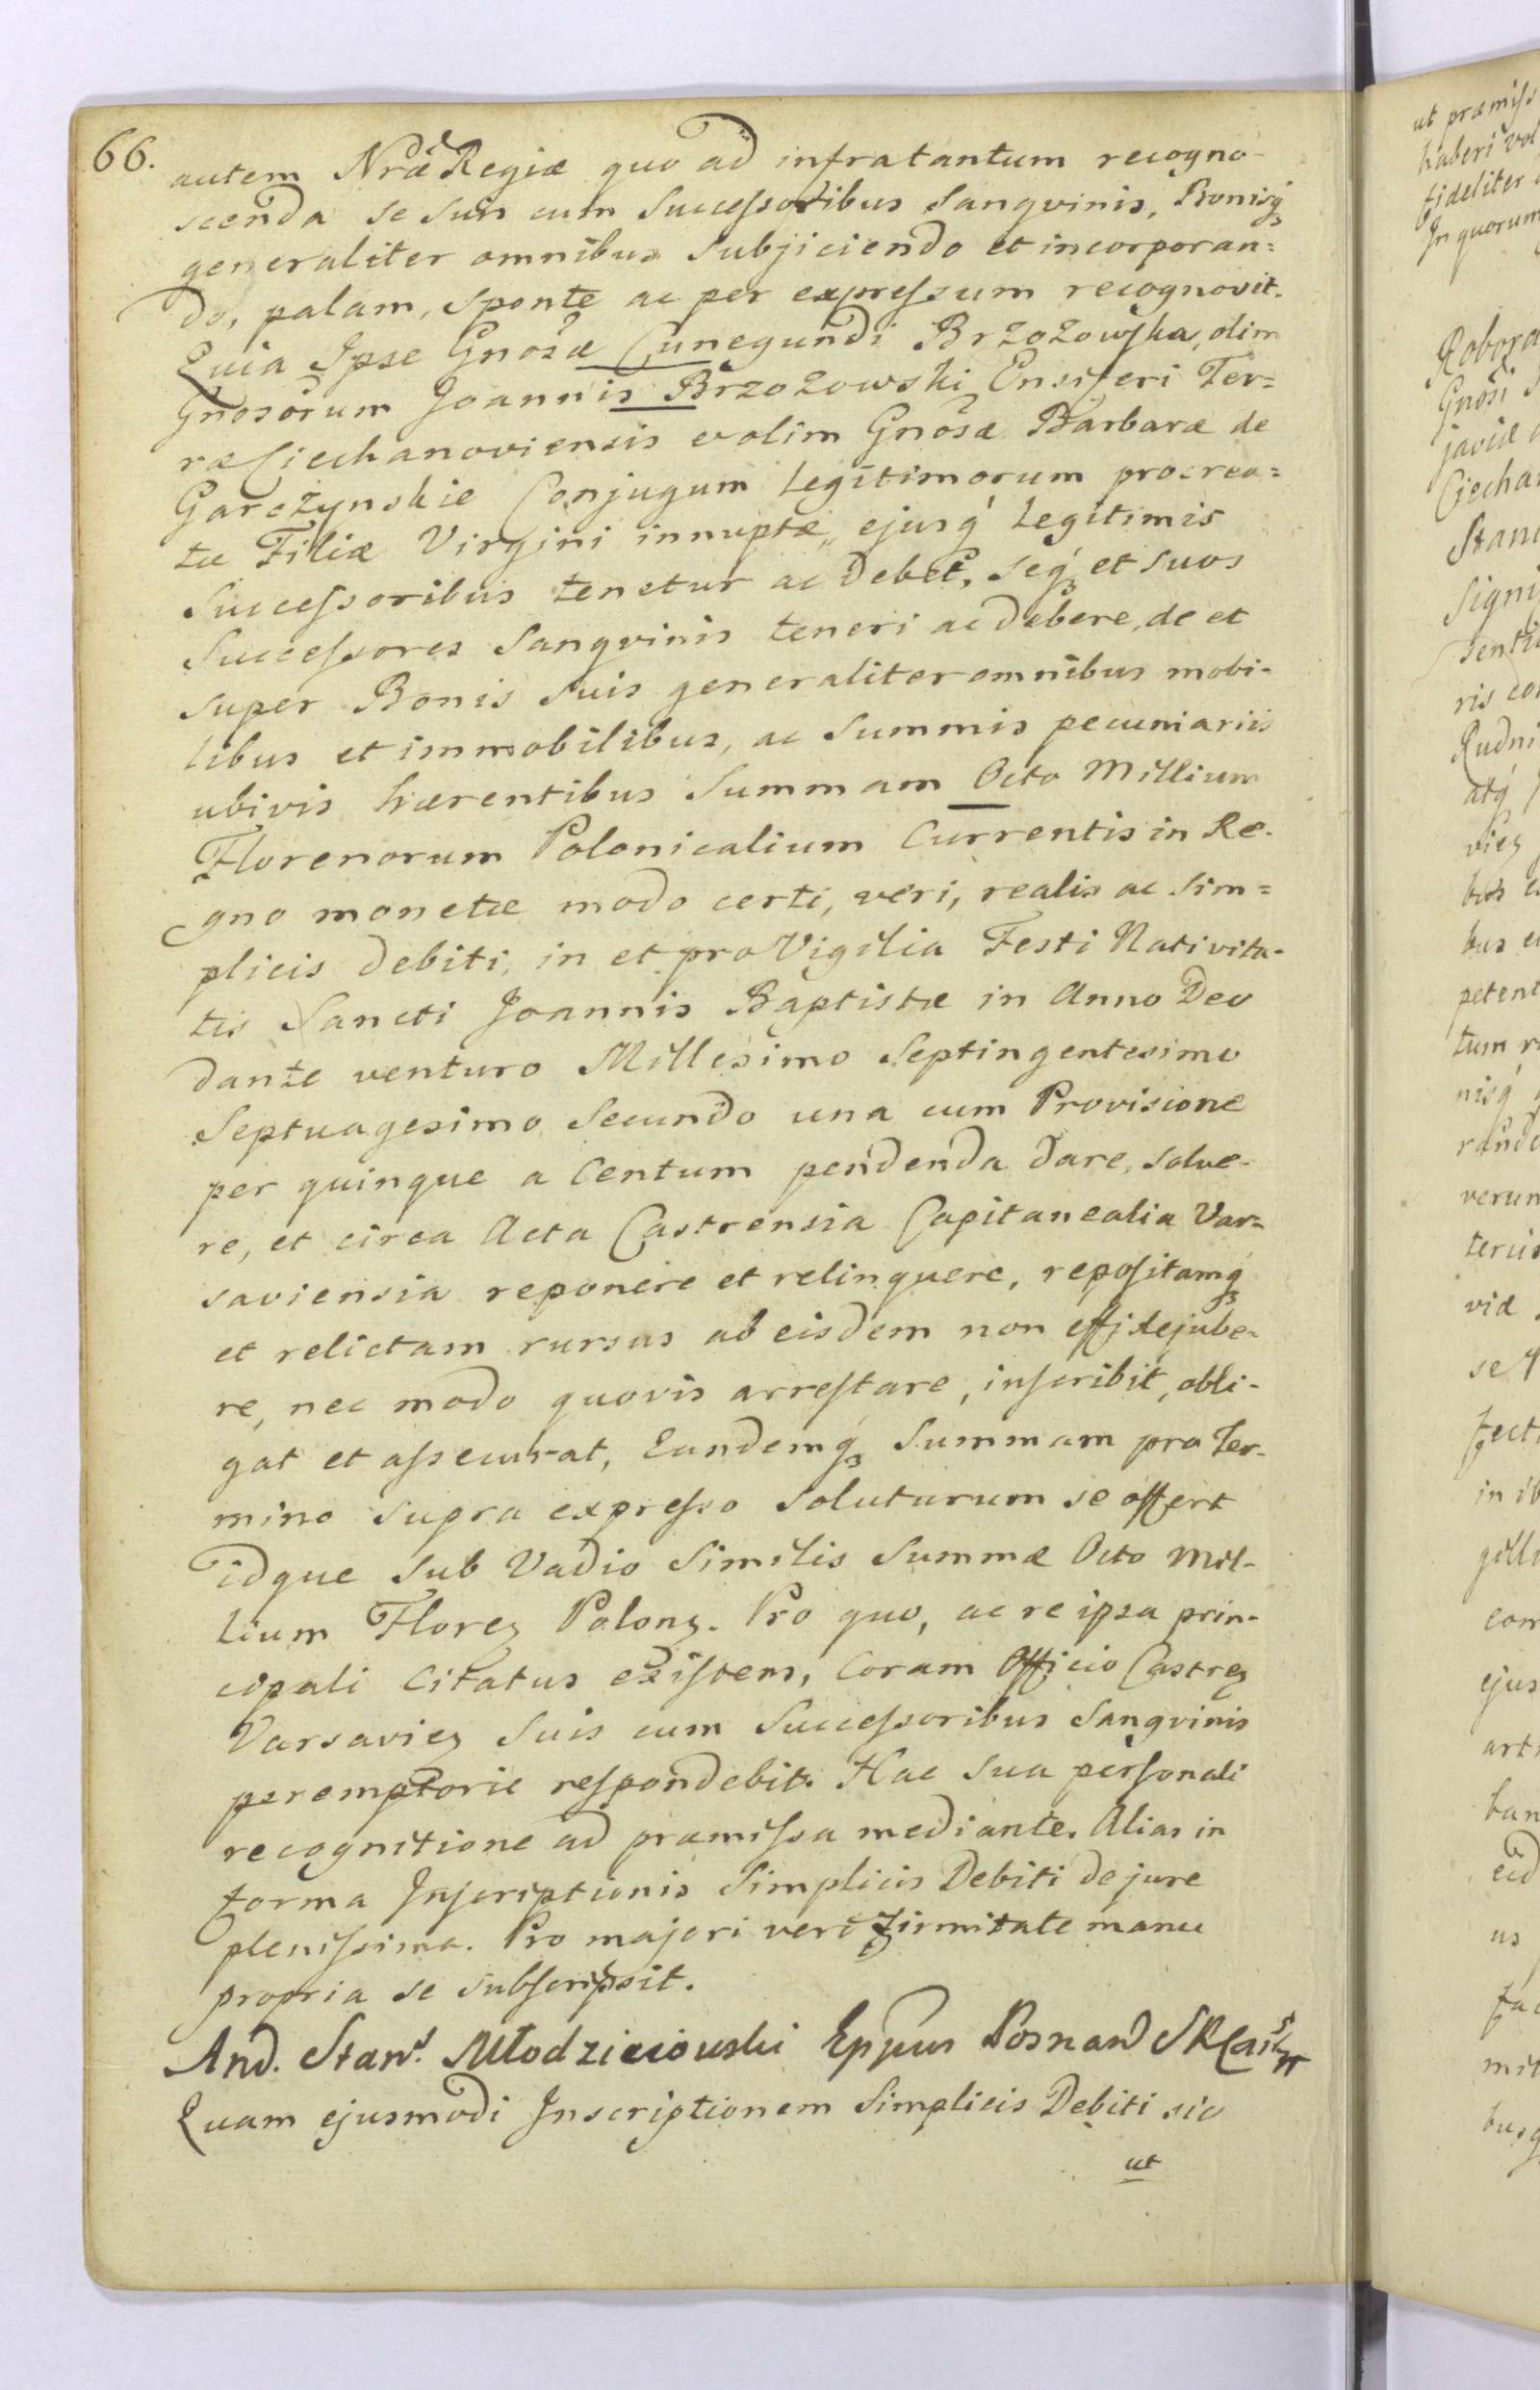 66.
autem Nrae Regiae quo ad infratantum recogno-
scenda se suis cum Successoribus Sangvinis, Bonisq
generaliter omnibus Subjiciendo et incorporan=
do, palam, sponte ac per expressum recognovit.
Quia Ipse Gnosae Cunegundi Brzozowska, olim
Gnosorum Joannis Brzozowski Ensiferi Ter=
rae Ciechanoviensis et olim Gnosae Barbarae de
Garczynskie Conjugum Legitimorum procrea=
tae Filiae Virgini innuptae, ejusq Legitimis
Successoribus tenetur ac debet, seq et suos
Successores Sangvinis teneri ac debere, de et
super Bonis suis generaliter omnibus mobi-
libus et immobilibus, ac Summis pecuniariis
ubivis haerentibus Summam Octo Millium
Florenorum Polonicalium Currentis in Re-
gno monetae modo certi, veri, realis ac Sim=
plicis debiti, in et pro Vigilia Festi Nativita-
tis Sancti Joannis Baptistae in Anno Deo
dante venturo Millesimo Septingentesimo
Septuagesimo Secundo una cum Provisione
per quinque a Centum pendenda dare, solve-
re, et circa Acta Castrensia Capitanealia Var=
saviensia reponere et relinquere, repositamq
et relictam rursus ab eisdem non
re, nec modo quovis arrestare, inscribit, obli-
gat et assecurat, Eandemq Summam pro Ter-
mino supra expresso soluturum se offert
idque sub Vadio Similis Summae Octo Mil-
lium Florez Polonz. Pro quo, ac re ipsa prin-
cipali Citatus existens, Coram Officio Castrez
Varsaviez Suis cum Successoribus Sangvinis
peremptorie respondebit. Hac sua personali
recognitione ad praemissa mediante. Alias in
forma Inscriptionis Simplicis Debiti de jure
plenissima. Pro majori vero firmitate manu
propria se subscripsit.
And. Stans. Młodzieiowski Eppus Posnan
Quam ejusmodi Inscriptionem Simplicis Debiti sic
ut
ut praemiss
haberi vol
fideliter
In quorum
Robora
Gnosi
javiae
Ciechan
Stani
Signi
senti
ris con
Rudni
atq
viez
bus
bus
petent
tum
nisq
rande
verum
teriis
viae
se
fect
in ib
gillu
com
ejus
art
ban
eid
us
fac
mit
busq